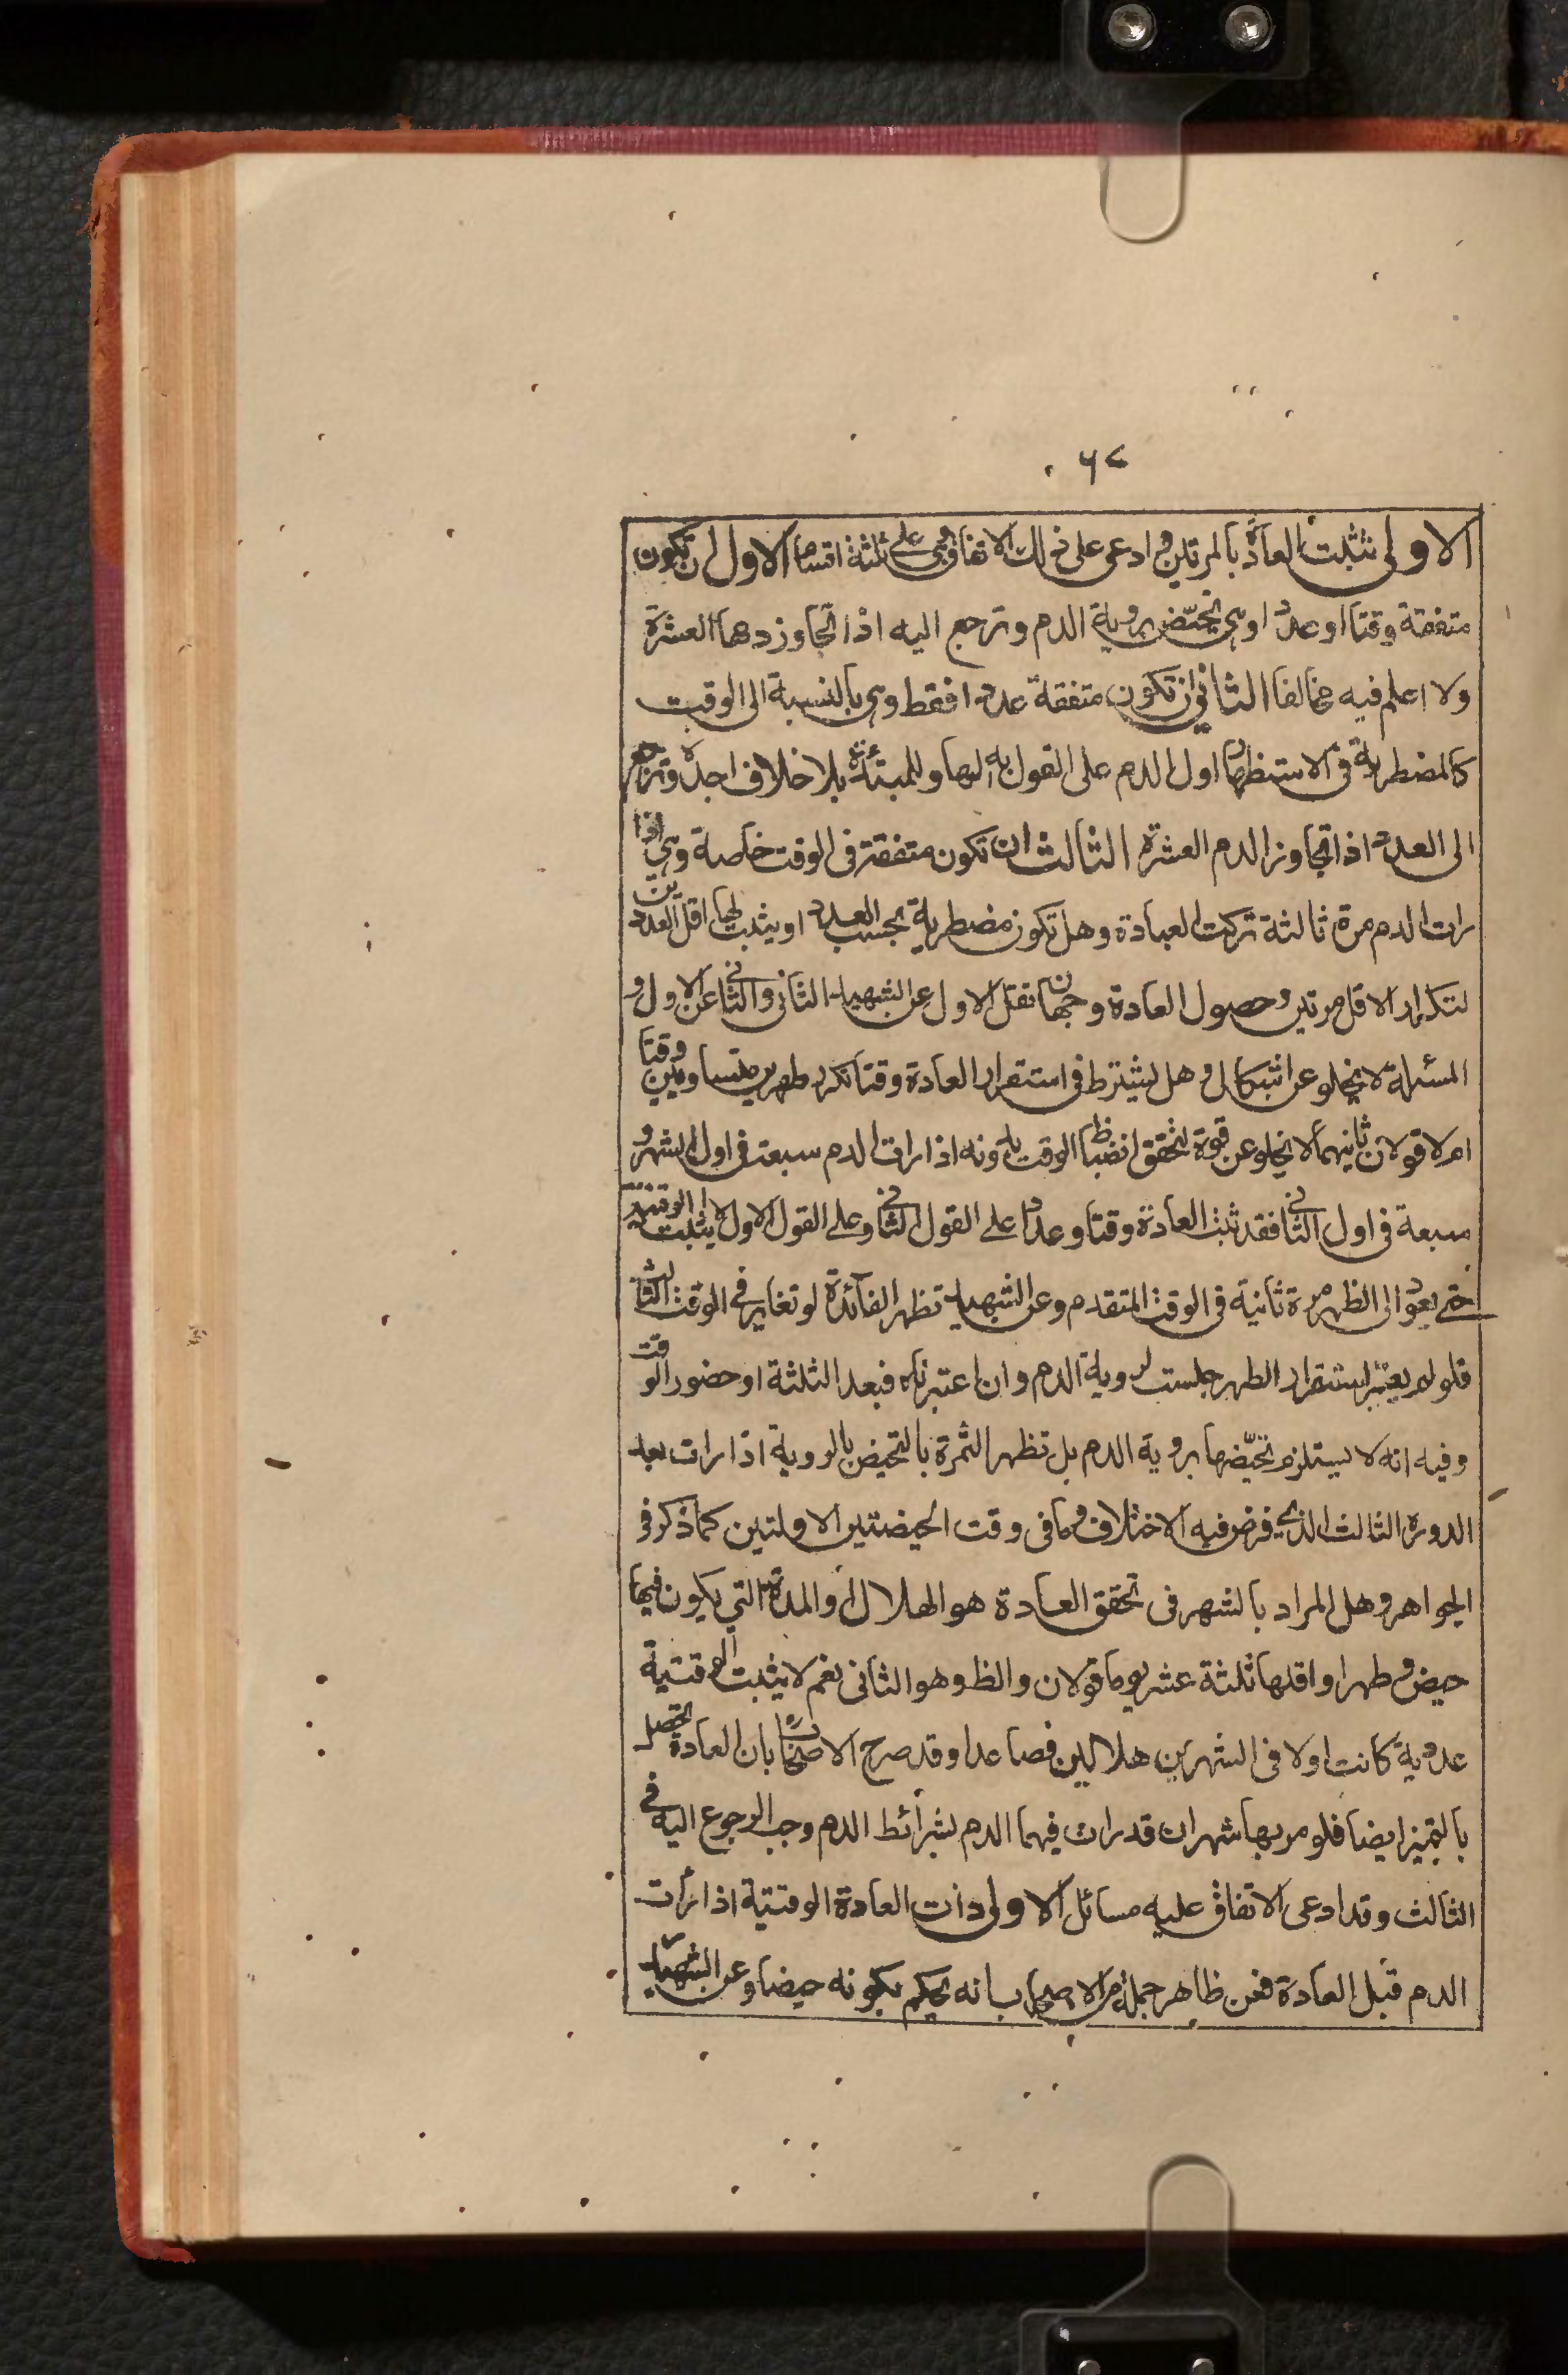 ۶۲
الاولى تثبت العادة بالمرتين وادعى على ذلك الاتفاق وهى على ثلثة اقسام الاول ان تكون
متفقة وقتا وعددا وهى تحيّض بروية الدم وترجع اليه اذا تجاوز دمها العشرة
ولا اعلم فيه مخالفا الثانى ان تكون متفقة عددا فقط وهى بالنسبة الى الوقت
كالمضطربة فى الاستظهار اول الدم على القول به لها وللمبتدئة بلا خلاف اجده وترجع
الى العدد اذا تجاوز الدم العشرة الثالث ان تكون متفقة فى الوقت خاصة وهى اذا
رات الدم مرة ثالثة تركت العبادة وهل تكون مضطربة بحسب العدد او يثبت لها اقل العددين
لتكرار الاقل مرتين وحصول العادة وجهان نقل الاول عن الشهيد الثانى والثانى عن الاول و
المسئلة لا يخلو عن اشكال وهل يشترط فى استقرار العادة وقتا تكرر طهرين متساويين وقتا
ام لا قولان ثانيهما لا يخلو عن قوة لتحقق انضباط الوقت بدونه اذا رات الدم سبعة فى اول الشهر و
سبعة فى اول الثانى فقد ثبت العادة وقتا وعددا على القول الثانى وعلى القول الاول لا يثبت الوقتية
حتى يعود الى الظهر مرة ثانية فى الوقت المتقدم وعن الشهيد تظهر الفائدة لو تغاير فى الوقت الثالث
فلو لم يعتبر استقرار الطهر جلست لروية الدم وان اعتبرناه فبعد الثلثة او حضور الوقت
وفيه انه لا يستلزم تحيّضها بروية الدم بل تظهر الثمرة بالتحيض بالروية اذا رات بعد
الدورة الثالث الذى فرض فيه الاختلاف وما فى وقت الحيضتين الاولتين كما ذكره فى
الجواهر وهل المراد بالشهر فى تحقق العادة هو الهلال او المدة التى يكون فيها
حيض وطهر او اقلها ثلثة عشر يوما قولان والظ وهو الثانى نعم لا يثبت الوقتية
عددية كانت اولا فى الشهرين هلاليين فصاعدا وقد صرح الاصحاب بان العادة تحصل
بالتميز ايضا فلو مر بها شهران قد رات فيهما الدم بشرائط الدم وجب الرجوع اليه فى
الثالث وقد ادعى الاتفاق عليه مسائل الاولى ذات العادة الوقتية اذا رأت
الدم قبل العادة فعن ظاهر جملة من الاصحاب بانه يحكم بكونه حيضا وعن الشهيد